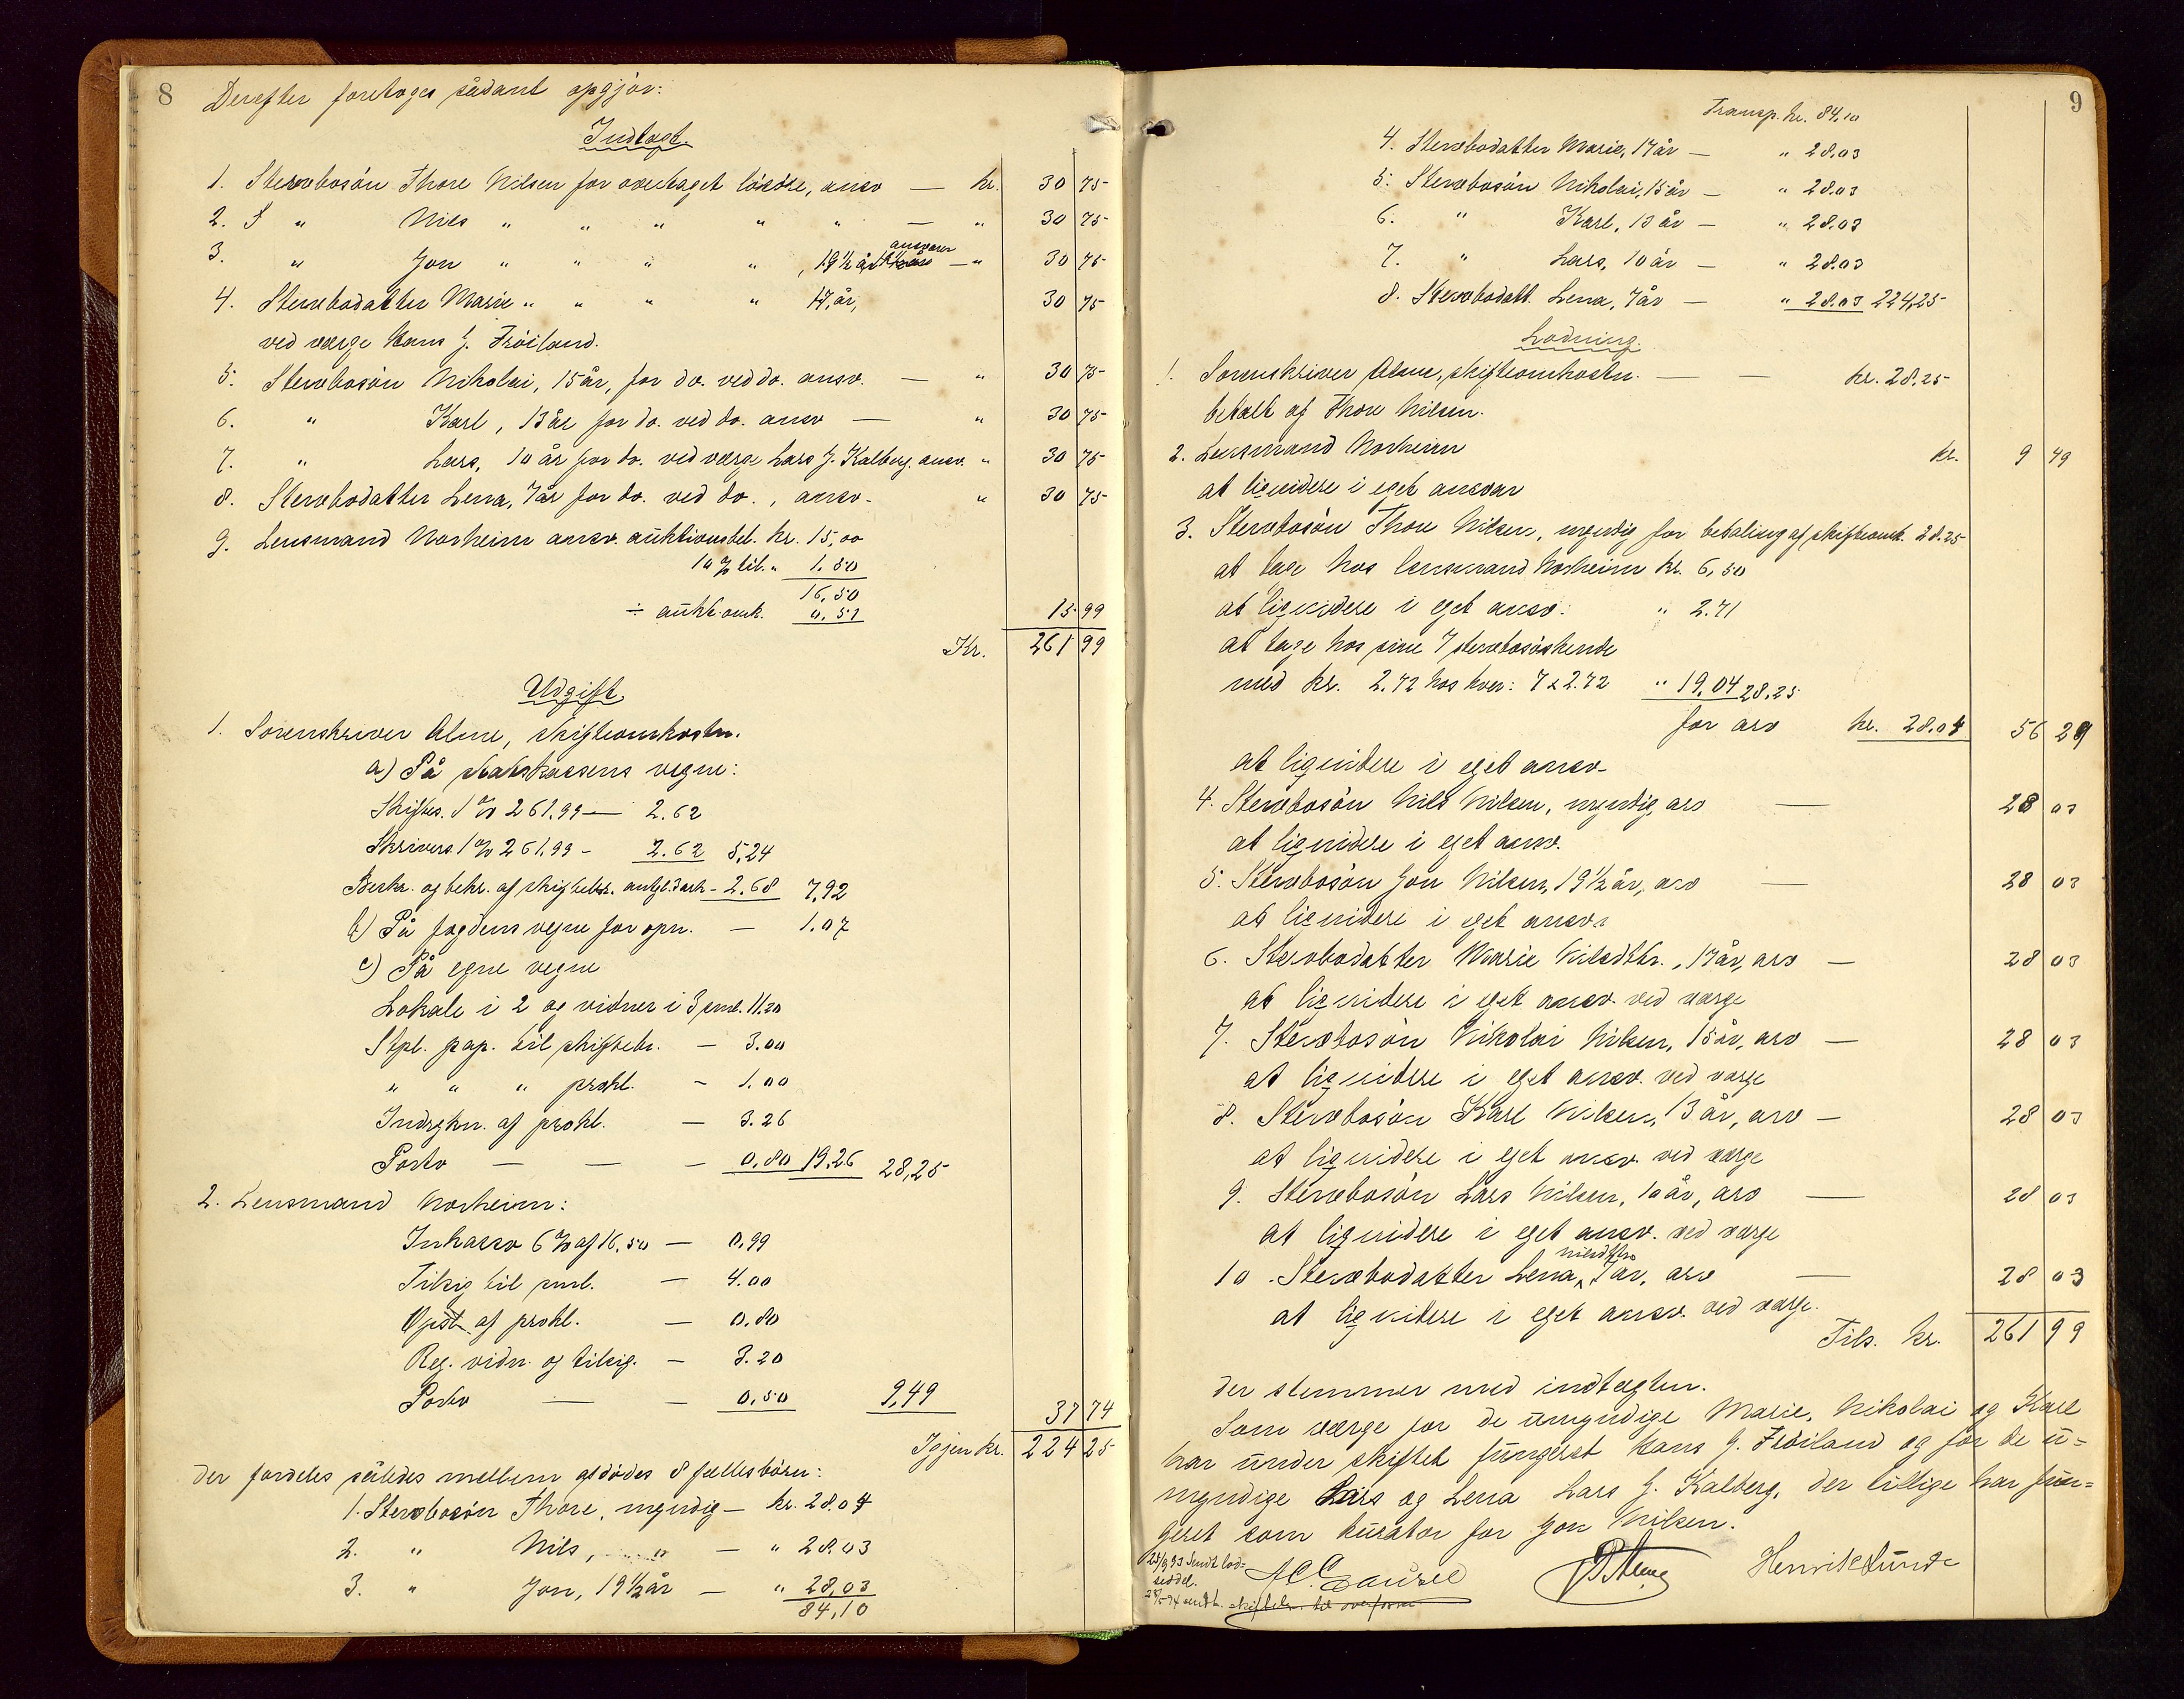 8 Derefter foretoges sådant opgjör:
Indtægt.
1. Stervbosön Thore Nilsen for overtaget lösöre, ansv — kr. 30 75
2. S " Nils " " " " " — " 30 75
3. " Jon " " " " , 19½ år, ansvarer — " 30 75
4. Stervbodatter Marie " " " " 17 år, 30 75
ved værge Hans J. Fröiland.
5. Stervbosön Nikolai, 15 år, for do. ved do. ansv. — " 30 75
6. " Karl, 13 år for do. ved do. ansv — " 30 75
7. " Lars, 10 år for do. ved værge Lars J. Kalberg. ansv. " 30 75
8. Stervbodatter Lena, 7 år for do. ved do., ansv. " 30 75
9. Lensmand Norheim ansv. auktionsbel. kr. 15,00
10 % til. " 1.50
16,50
÷ aukt. omk. 0.51 15 99
Kr. 261 99
Udgift.
1. Sorenskriver Alme, skifteomkostn.
a) På statskassens vegne:
Skiftes. 1 % 261.99 — 2.62
Skrivers. 1 % 261.99 - 2.62 5,24
Beskr. og bekr. af skiftebr. antgl. 2 ark - 2.68 7,92
b) På fogdens vegne for opn. — 1.07
c) På egne vegne
Lokale i 2 og vidner i 3 sml. 11.20
Stpl. pap. til skiftebr. — 3.00
" " " prohl. - 1.00
Indrykn. af prohl. — 3.26
Porto — — - 0,80 19,26 28,25
2. Lensmand Norheim:
Inkasso 6 % af 16.50 — 0,99
Tilsig til sml. — 4.00
Opsl. af prohl. — 0.80
Reg. vidn. og tilsig. — 3.20
Porto — - 0,50 9,49 37 74
Igjen kr. 224 25
der fordeles således mellem afdödes 8 fællesbörn:
1. Stervbosön Thore, myndig — kr. 28.04
2. " Nils, " — " 28.03
3. " Jon, 19½ år — " 28,03
84,10
9
Transp. kr. 84,10
4. Stervbodatter Marie, 17 år — " 28.03
5. Stervbosön Nikolai, 15 år — " 28.03
6. " Karl, 13 år — " 28.03
7. " Lars, 10 år — " 28.03
8. Stervbodatt. Lena, 7 år — " 28.03 224,25
Lodning.
1. Sorenskriver Alme, skifteomkostn. — — kr. 28,25
betalt af Thore Nilsen.
2. Lensmand Norheim kr. 9 49
at liqvidere i eget ansvar
3. Stervbosön Thore Nilsen, myndig for betaling af skifteomk. 28.25
at tage hos lensmand Norheim kr. 6,50
at liqvidere i eget ansv. " 2.71
at tage hos sine 7 stervbosöskende
med kr. 2.72 hos hver: 7 x 2.72 " 19,04 28,25
for arv kr. 28.04 56 29
at liqvidere i eget ansv.
4. Stervbosön Nils Nilsen, myndig, arv — 28 03
at liqvidere i eget ansv.
5. Stervbosön Jon Nilsen, 19½ år, arv — 28 03
at liqvidere i eget ansv.
6. Stervbodatter Marie Nilsdttr., 17 år, arv — 28 03
at liqvidere i eget ansv. ved værge
7. Stervbosön Nikolai Nilsen, 15 år, arv — 28 03
at liqvidere i eget ansv. ved værge
8. Stervbosön Karl Nilsen, 13 år, arv — 28 03
at liqvidere i eget ansv. ved værge
9. Stervbosön Lars Nilsen, 10 år, arv — 28 03
at liqvidere i eget ansv. ved værge
Nilsdttr
10. Stervbodatter Lena, 7 år, arv — 28 03
at liqvidere i eget ansv. ved værge.
Tils. kr. 261 99
der stemmer med indtægten.
Som værge for de umyndige Marie, Nikolai og Karl
har under skiftet fungeret Hans J. Fröiland og for de u=
myndige Lars og Lena Lars J. Kalberg, der tillige har fun=
geret som kurator for Jon Nilsen.
23/9 93 sendt lod=
seddel.
Henrik Lunde
sendt. skiftebr. til overform.